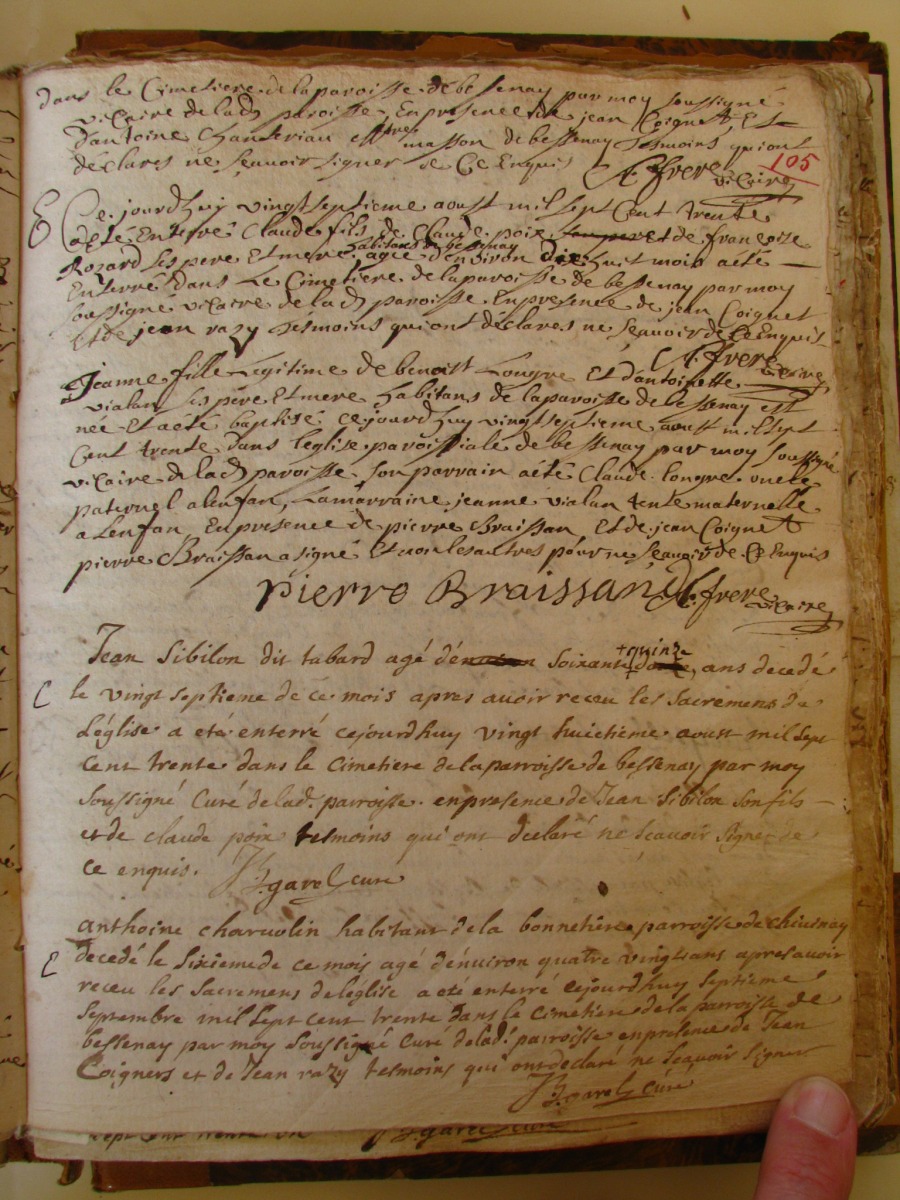 dans le Cimetiere de la paroisse de bessenay par moy soussigné
vicaire de lad paroisse, En presence de jean Coignet, Et
d'antoine Chanteriau masson de bessenay tesmoins qui ont
déclares ne sçauoir signer de Ce Enquis
frere
vicaire
105
E Ce jourdhuy vingt septieme aoust mil sept Cent trente
a été Enterré Claude fils de Claude poix et de francoise
Rozard ses pere Et mere, habitans de bessenay agée d'enuiron dix huit mois a été
Enterré dans Le Cimetiere de la paroisse de bessenay par moy
soussigné vicaire de lad paroisse. En presence de jean Coignet
Et de jean razy tesmoins qui ont déclares ne sçauoir de Ce Enquis
frere
vicaire
Jeanne fille Legitime de benoist Longre Et d'antoinette
vialan ses pere Et mere habitans de la paroisse de bessenay est
née Et a été baptisé cejourdhuy vingt septieme aoust mil sept
Cent trente dans leglise paroissiale de bessenay par moy soussigné
vicaire de lad paroisse. son parrain a été Claude longre oncle
paternel a lenfan, La marraine jeanne vialan tente maternelle
a Lenfan, En presence de pierre Braissan Et de jean Coignet
pierre Braissan a signé Et non les autres pour ne sçauoir de Ce Enquis
Pierre Braissand frere
vicaire
Jean Sibilon dit tabard agé d'en soixante + quinze ans decedé
le vingt septieme de ce mois apres auoir receu les sacremens de
L'église a eté enterré cejourdhuy vingt huictieme aoust mil sept
cent trente dans le cimetiere de la parroisse de bessenay par moy
soussigné Curé de lad. parroisse. en presence de Jean Sibilon son fils
et de claude poix tesmoins qui ont declaré ne scauoir signer de
ce enquis. garel cure
E anthoine charuolin habitant de la bonnetiere parroisse de cheuinay
decedé le sixieme de ce mois agé d'énuiron quatre vingt ans apres auoir
receu les sacremens de leglise a eté enterré cejourdhuy septieme
septembre mil sept cent trente dans le cimetiere de la parroisse de
bessenay par moy soussigné curé de lad. parroisse en presence de Jean
Coigners et de Jean razy tesmoins qui ont declaré ne sçauoir signer
garel curé
sept cent trente un garel cure